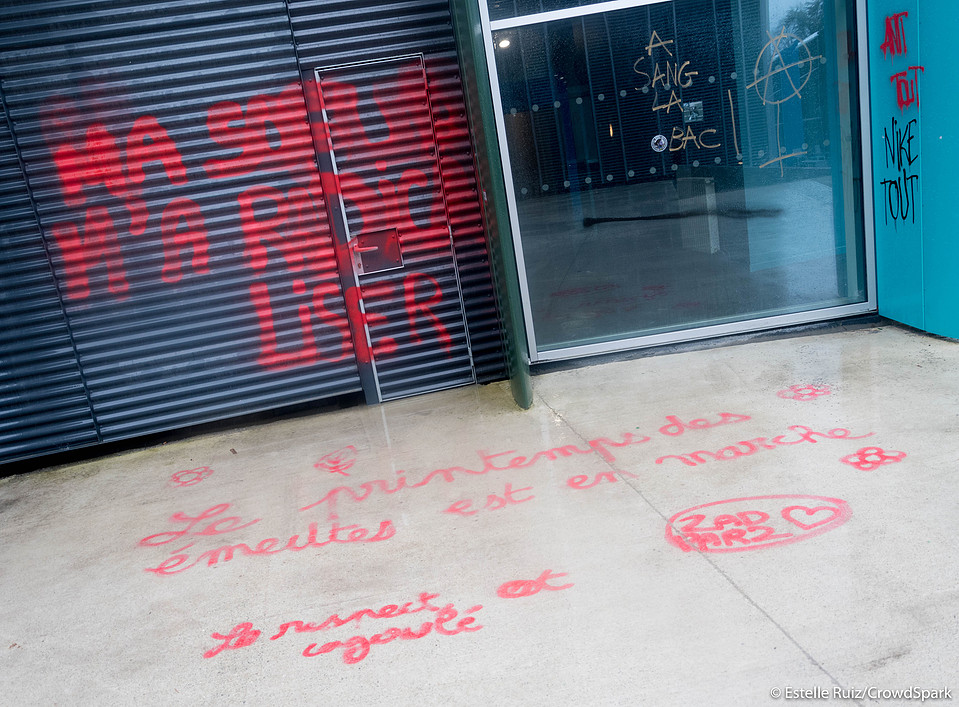 MA SOEUR
M'A RADICA
LISER
A
SANG
LA
BAC
ANTI
TOUT
NIKE
TOUT
Le printemps des
émeutes est en marche
ZAD
Le respect
cagoulé
© Estelle Ruiz/CrowdSpark